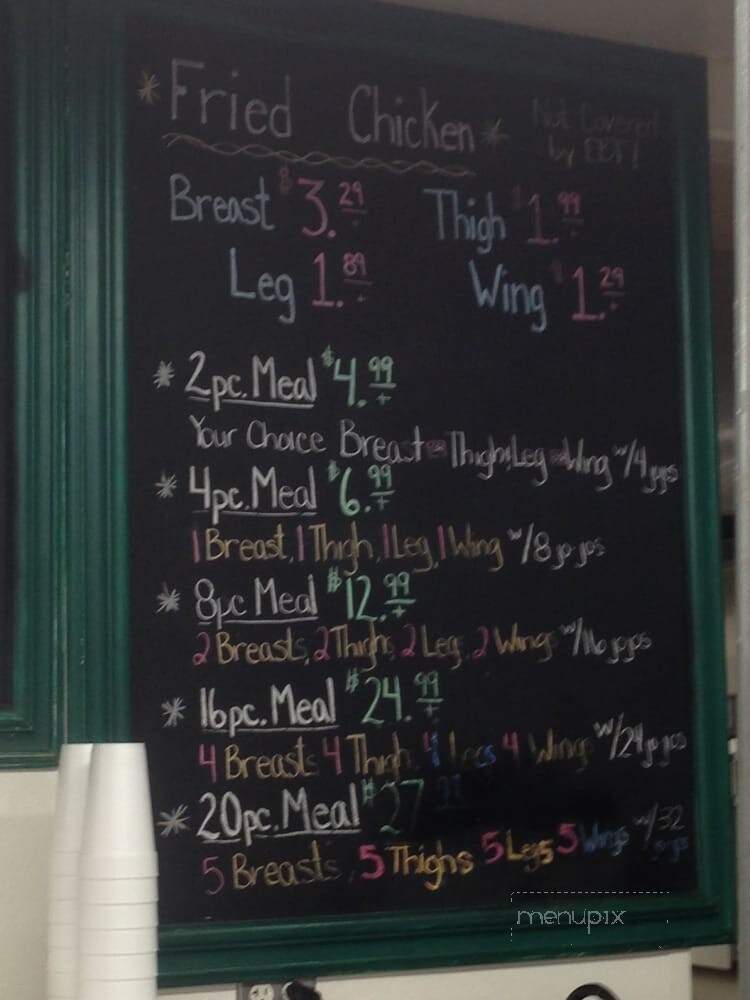 * Fried Chicken *
Not Covered
by EBT!
Breast $3.29+ Thigh $1.99+
Leg 1.89+ Wing $1.29+
* 2pc. Meal $4.99+
Your Choice Breast or Thigh, Leg or Wing w/4 jojos
* 4pc. Meal $6.99+
1 Breast, 1 Thigh, 1 Leg, 1 Wing w/8 jo jos
* 8pc Meal $12.99+
2 Breasts, 2 Thighs 2 Legs, 2 Wings w/16 jojos
* 16pc. Meal $24.99+
4 Breasts 4 Thighs 4 Legs 4 Wings w/24 jo jos
* 20pc. Meal $27.99
5 Breasts, 5 Thighs 5 Legs 5 Wings w/32 jojos
menupix